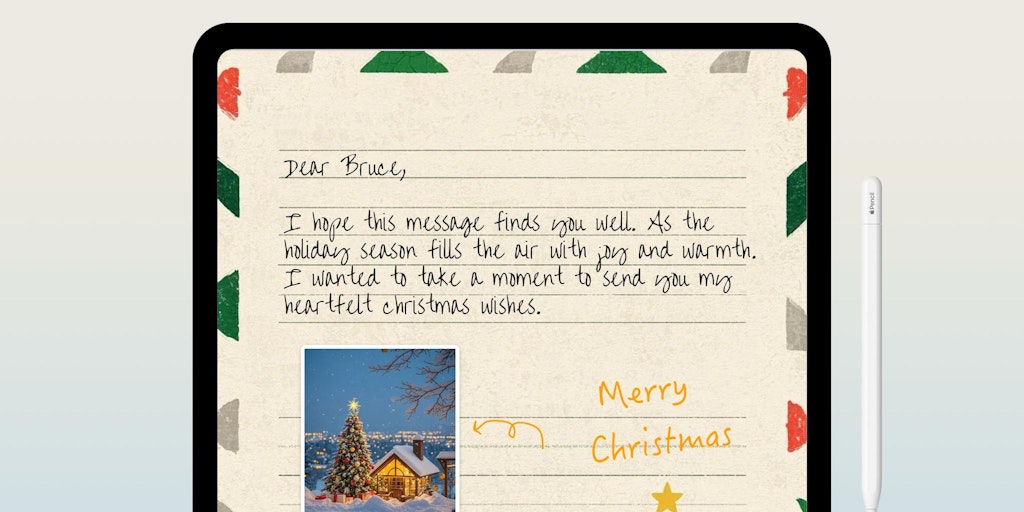 Dear Bruce,
I hope this message finds you well. As the
holiday season fills the air with joy and warmth.
I wanted to take a moment to send you my
heartfelt christmas wishes.
Merry
Christmas
Pencil